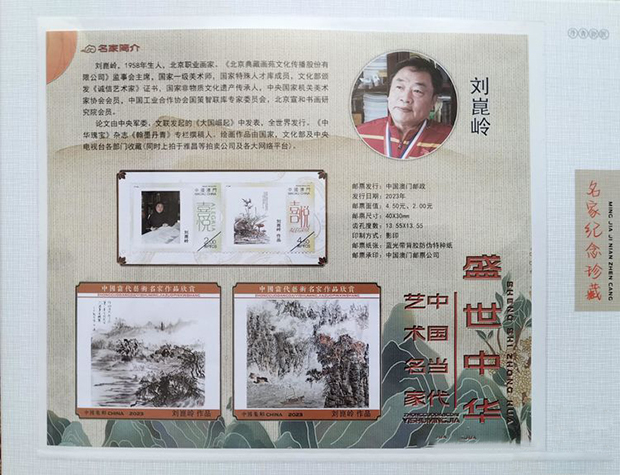 名家简介
刘崑岭，1958年生人，北京职业画家、《北京典藏画苑文化传播股份有
限公司》监事会主席，国家一级美术师，国家特殊人才库成员，文化部颁
发《诚信艺术家》证书，国家非物质文化遗产传承人，中央国家机关美术
家协会会员，中国工业合作协会国策智联库专家委员会，北京宣和书画研
究院会员。
论文由中央军委、文联发起的《大国崛起》中发表，全世界发行。《中
华瑰宝》杂志《翰墨丹青》专栏撰稿人，绘画作品由国家，文化部及中央
电视台各部门收藏(同时上拍于雅昌等拍卖公司及各大网络平台)。
刘崑岭
邮票发行：中国澳门邮政
发行日期：2023年
邮票面值：4.50元、2.00元
邮票尺寸：40X30mm
齿孔度数：13.55X13.55
印制方式：影印
邮票纸张：蓝光带背胶防伪特种纸
邮票承印：中国澳门邮票公司
中國澳門
喜悅
2.00
刘崑岭
中國澳門
喜悅
4.50
刘崑岭 作品
中國當代藝術名家作品欣賞
中国集邮 CHINA 2023
刘崑岭 作品
中國當代藝術名家作品欣賞
中国集邮 CHINA 2023
刘崑岭 作品
盛世中华
SHENG SHI ZHONG HUA
中国当代
艺术名家
ZHONGGUODANGDAI
YISHUMINGJIA
名家纪念珍藏
MING JIA JI NIAN ZHEN CANG